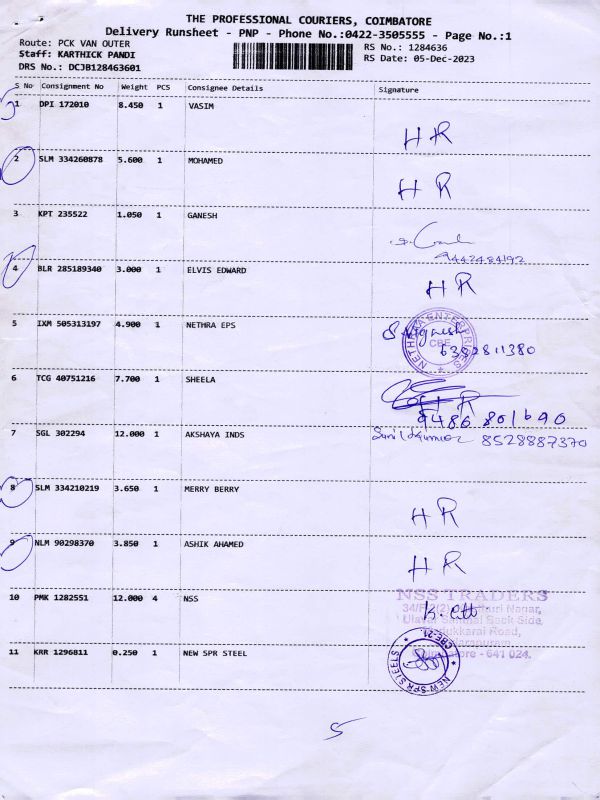 THE PROFESSIONAL COURIERS, COIMBATORE
Delivery Runsheet - PNP - Phone No.:0422-3505555 - Page No.:1
Route: PCK VAN OUTER
Staff: KARTHICK PANDI
DRS No.: DCJB128463601
RS No.: 1284636
RS Date: 05-Dec-2023
S No Consignment No Weight PCS Consignee Details Signature
1 DPI 172010 8.450 1 VASIM
HR
2 SLM 334260878 5.600 1 MOHAMED
HR
3 KPT 235522 1.050 1 GANESH
9442484192
4 BLR 285189340 3.000 1 ELVIS EDWARD
HR
5 IXM 505313197 4.900 1 NETHRA EPS
S Vignesh
6382811380
NETHRAA ENTERPRISES
CBE
6 TCG 40751216 7.700 1 SHEELA
9486801690
7 SGL 302294 12.000 1 AKSHAYA INDS
Sunil Kumar 8528887370
8 SLM 334210219 3.650 1 MERRY BERRY
HR
9 NLM 90298370 3.850 1 ASHIK AHAMED
HR
10 PMK 1282551 12.000 4 NSS
NSS TRADERS
Nagar,
Back Side,
Road,
- 641 024.
11 KRR 1296811 0.250 1 NEW SPR STEEL
NEW SPR STEELS
CBE-21
5